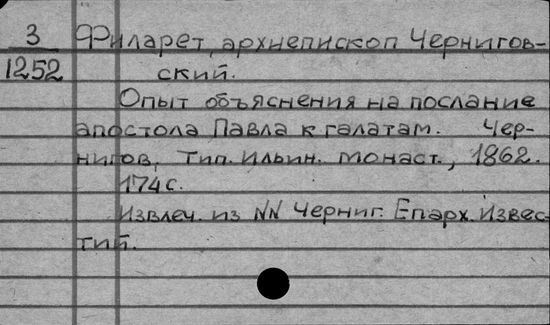 3
1252
Филарет, архиепископ Чернигов-
ский.
Опыт объяснения на послание
апостола Павла к галатам. Чер-
нигов, тип. Ильин. монаст., 1862.
174 с.
Извлеч. из NN Черниг. Епарх. Извес-
тий.